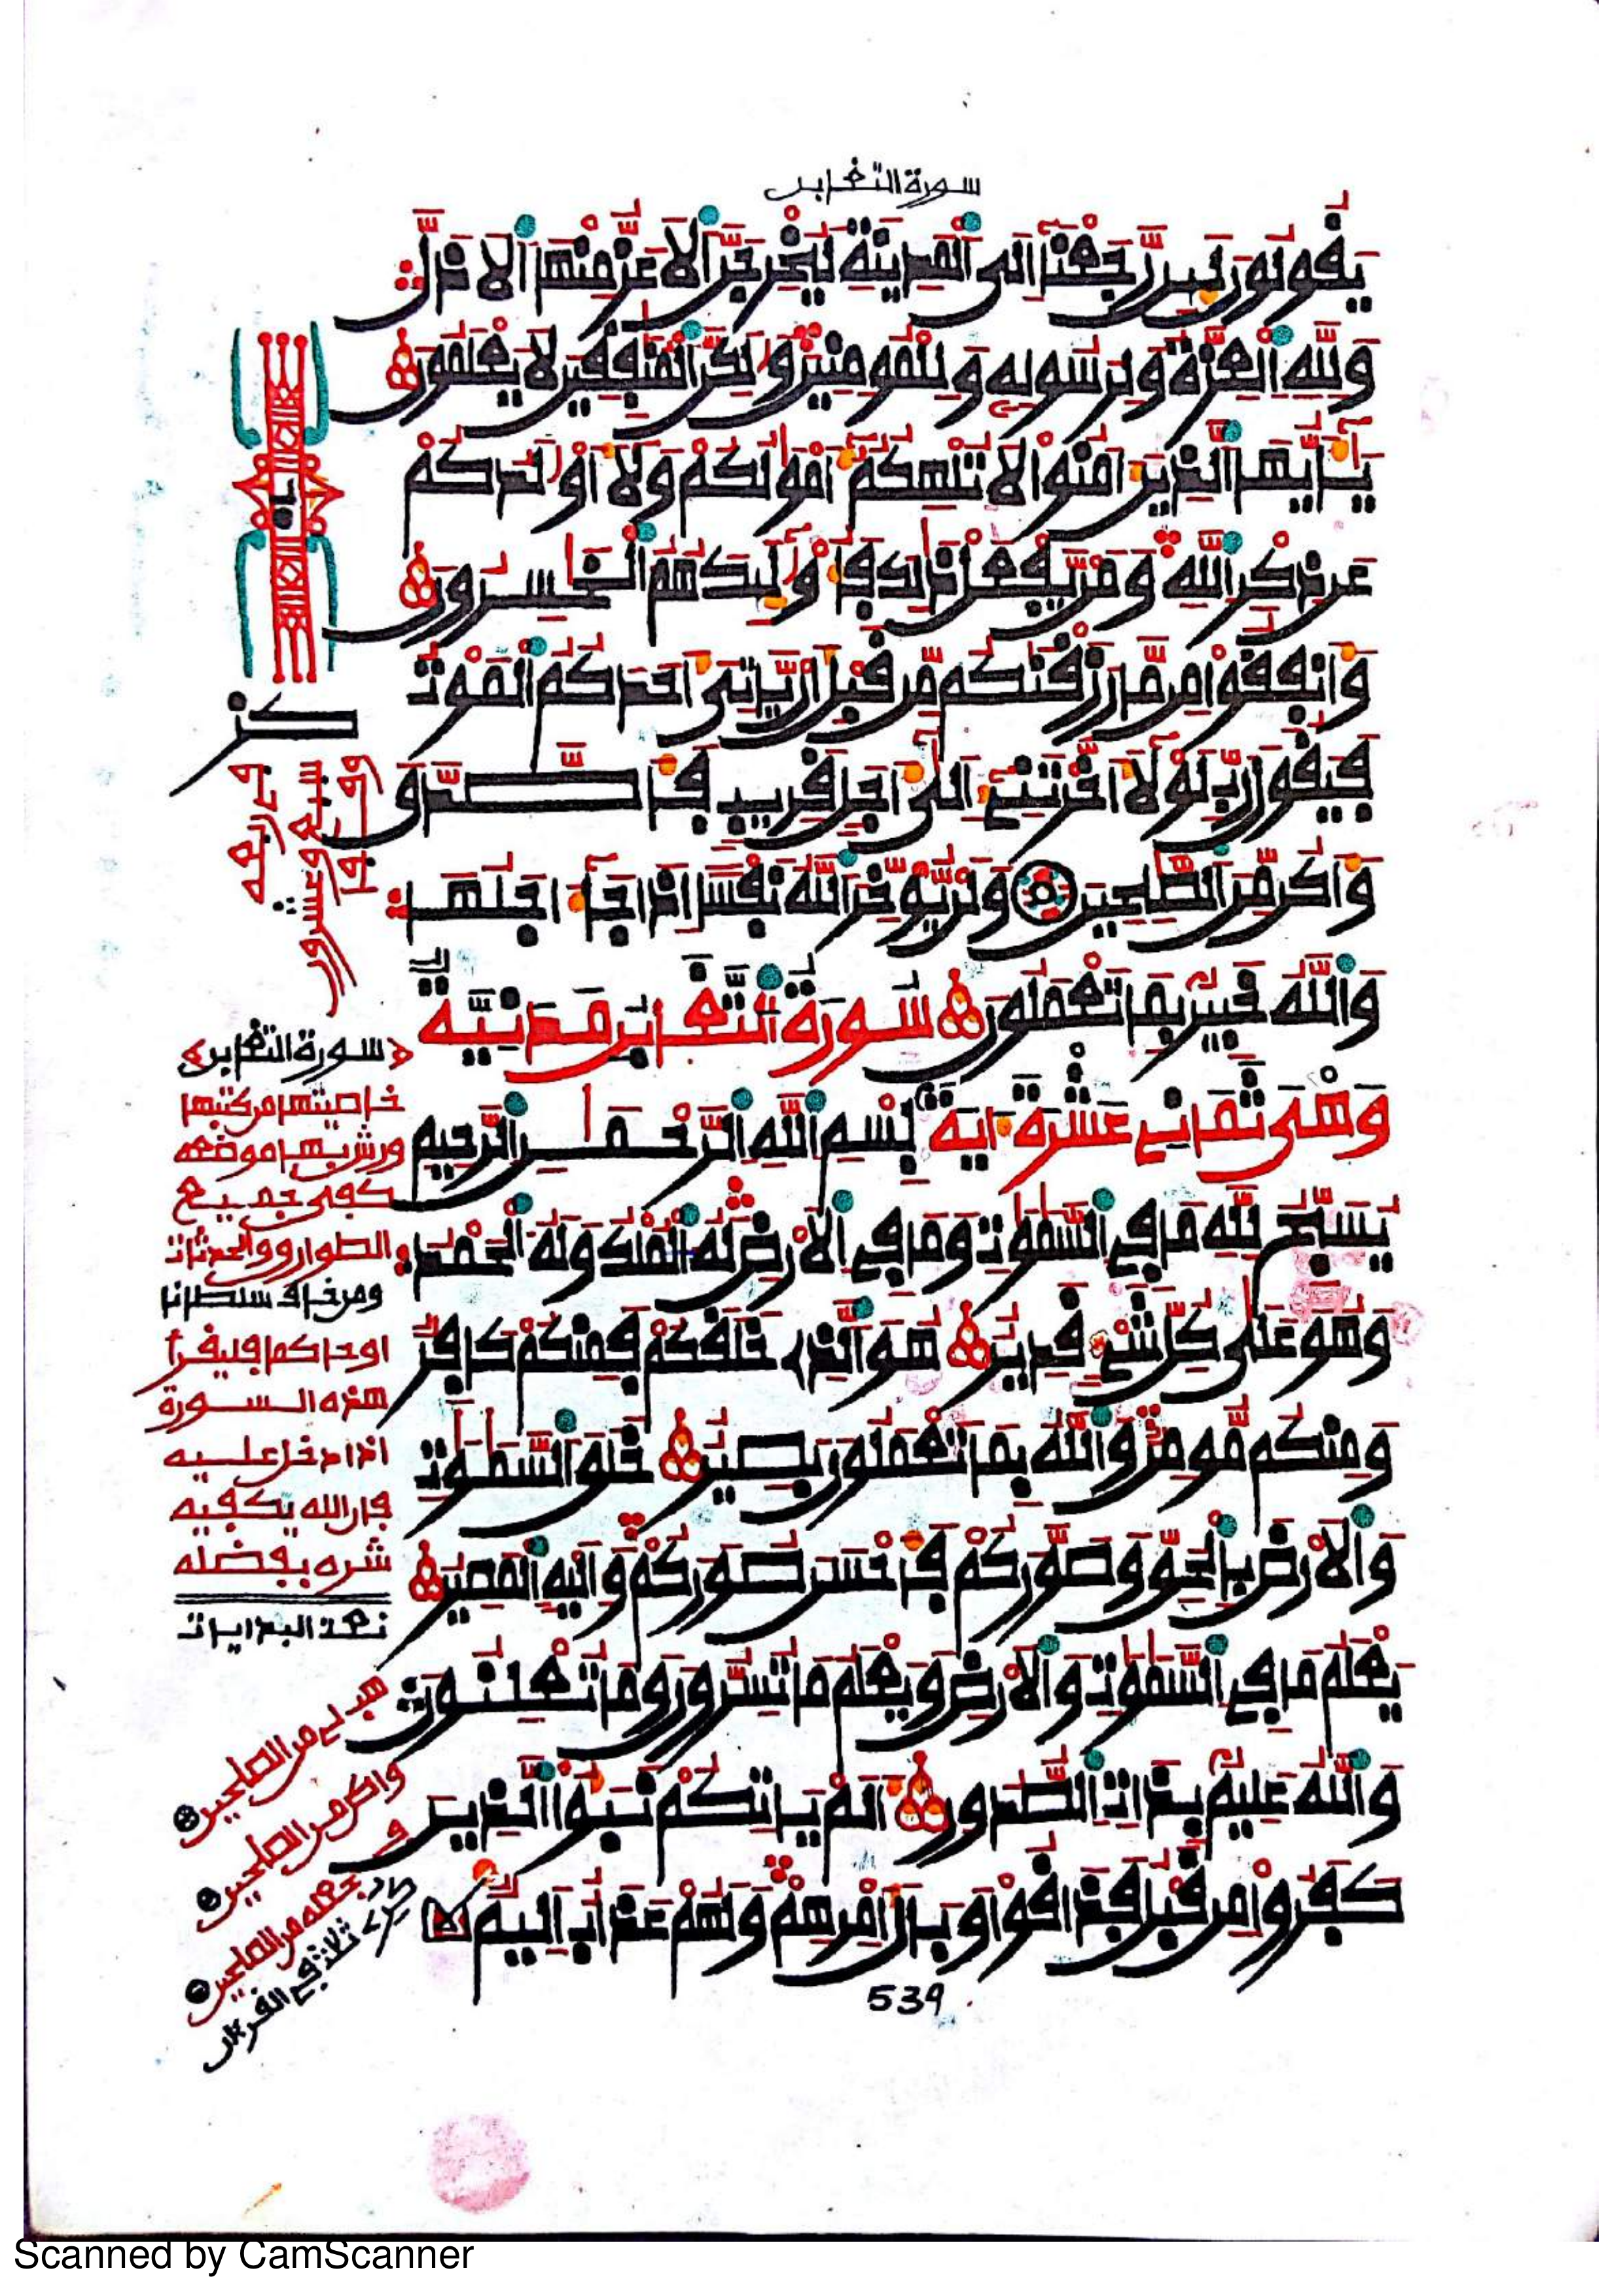 سورة التغابن
يقولون لين رجعنا إلى المدينة ليخرجن الأعز منها الأذل
ولله العزة ولرسوله وللمومنين ولكن المنفقين لا يعلمون
يأيها الذين امنوا لا تلهكم أمولكم ولا أولدكم
عن ذكر الله ومن يفعل ذلك فأوليك هم الخسرون
وأنفقوا من ما رزقنكم من قبل أن ياتي أحدكم الموت
فيقول رب لولا أخرتني إلى أجل قريب فأصدق
وأكن من الصلحين ولن يوخر الله نفسا إذا جا أجلها
والله خبير بما تعملون سورة التغابن مدنية
وهي ثماني عشرة اية بسم الله الرحمن الرحيم
يسبح لله ما في السموت وما في الأرض له الملك وله الحمد
وهو على كل شي قدير هو الذي خلقكم فمنكم كافر
ومنكم مومن والله بما تعملون بصير خلق السموت
والأرض بالحق وصوركم فأحسن صوركم وإليه المصير
يعلم ما في السموت والأرض ويعلم ما تسرون وما تعلنون
والله عليم بذات الصدور ألم ياتكم نبؤا الذين
كفروا من قبل فذاقوا وبال أمرهم ولهم عذاب أليم
539
سورة التغابن
خاصيتها من كتبها
ورش بها موضعه
كفي جميع
الطوارق والحدثات
ومن خاف سلطانا
اوحاكما فليقرأ
هذه السورة
اذا دخل عليه
فان الله يكفيه
شره بفضله
هب لي من الصلحين
وأكن من الصلحين
فجعله من الصلحين
ثلاث في القرءان
Scanned by CamScanner